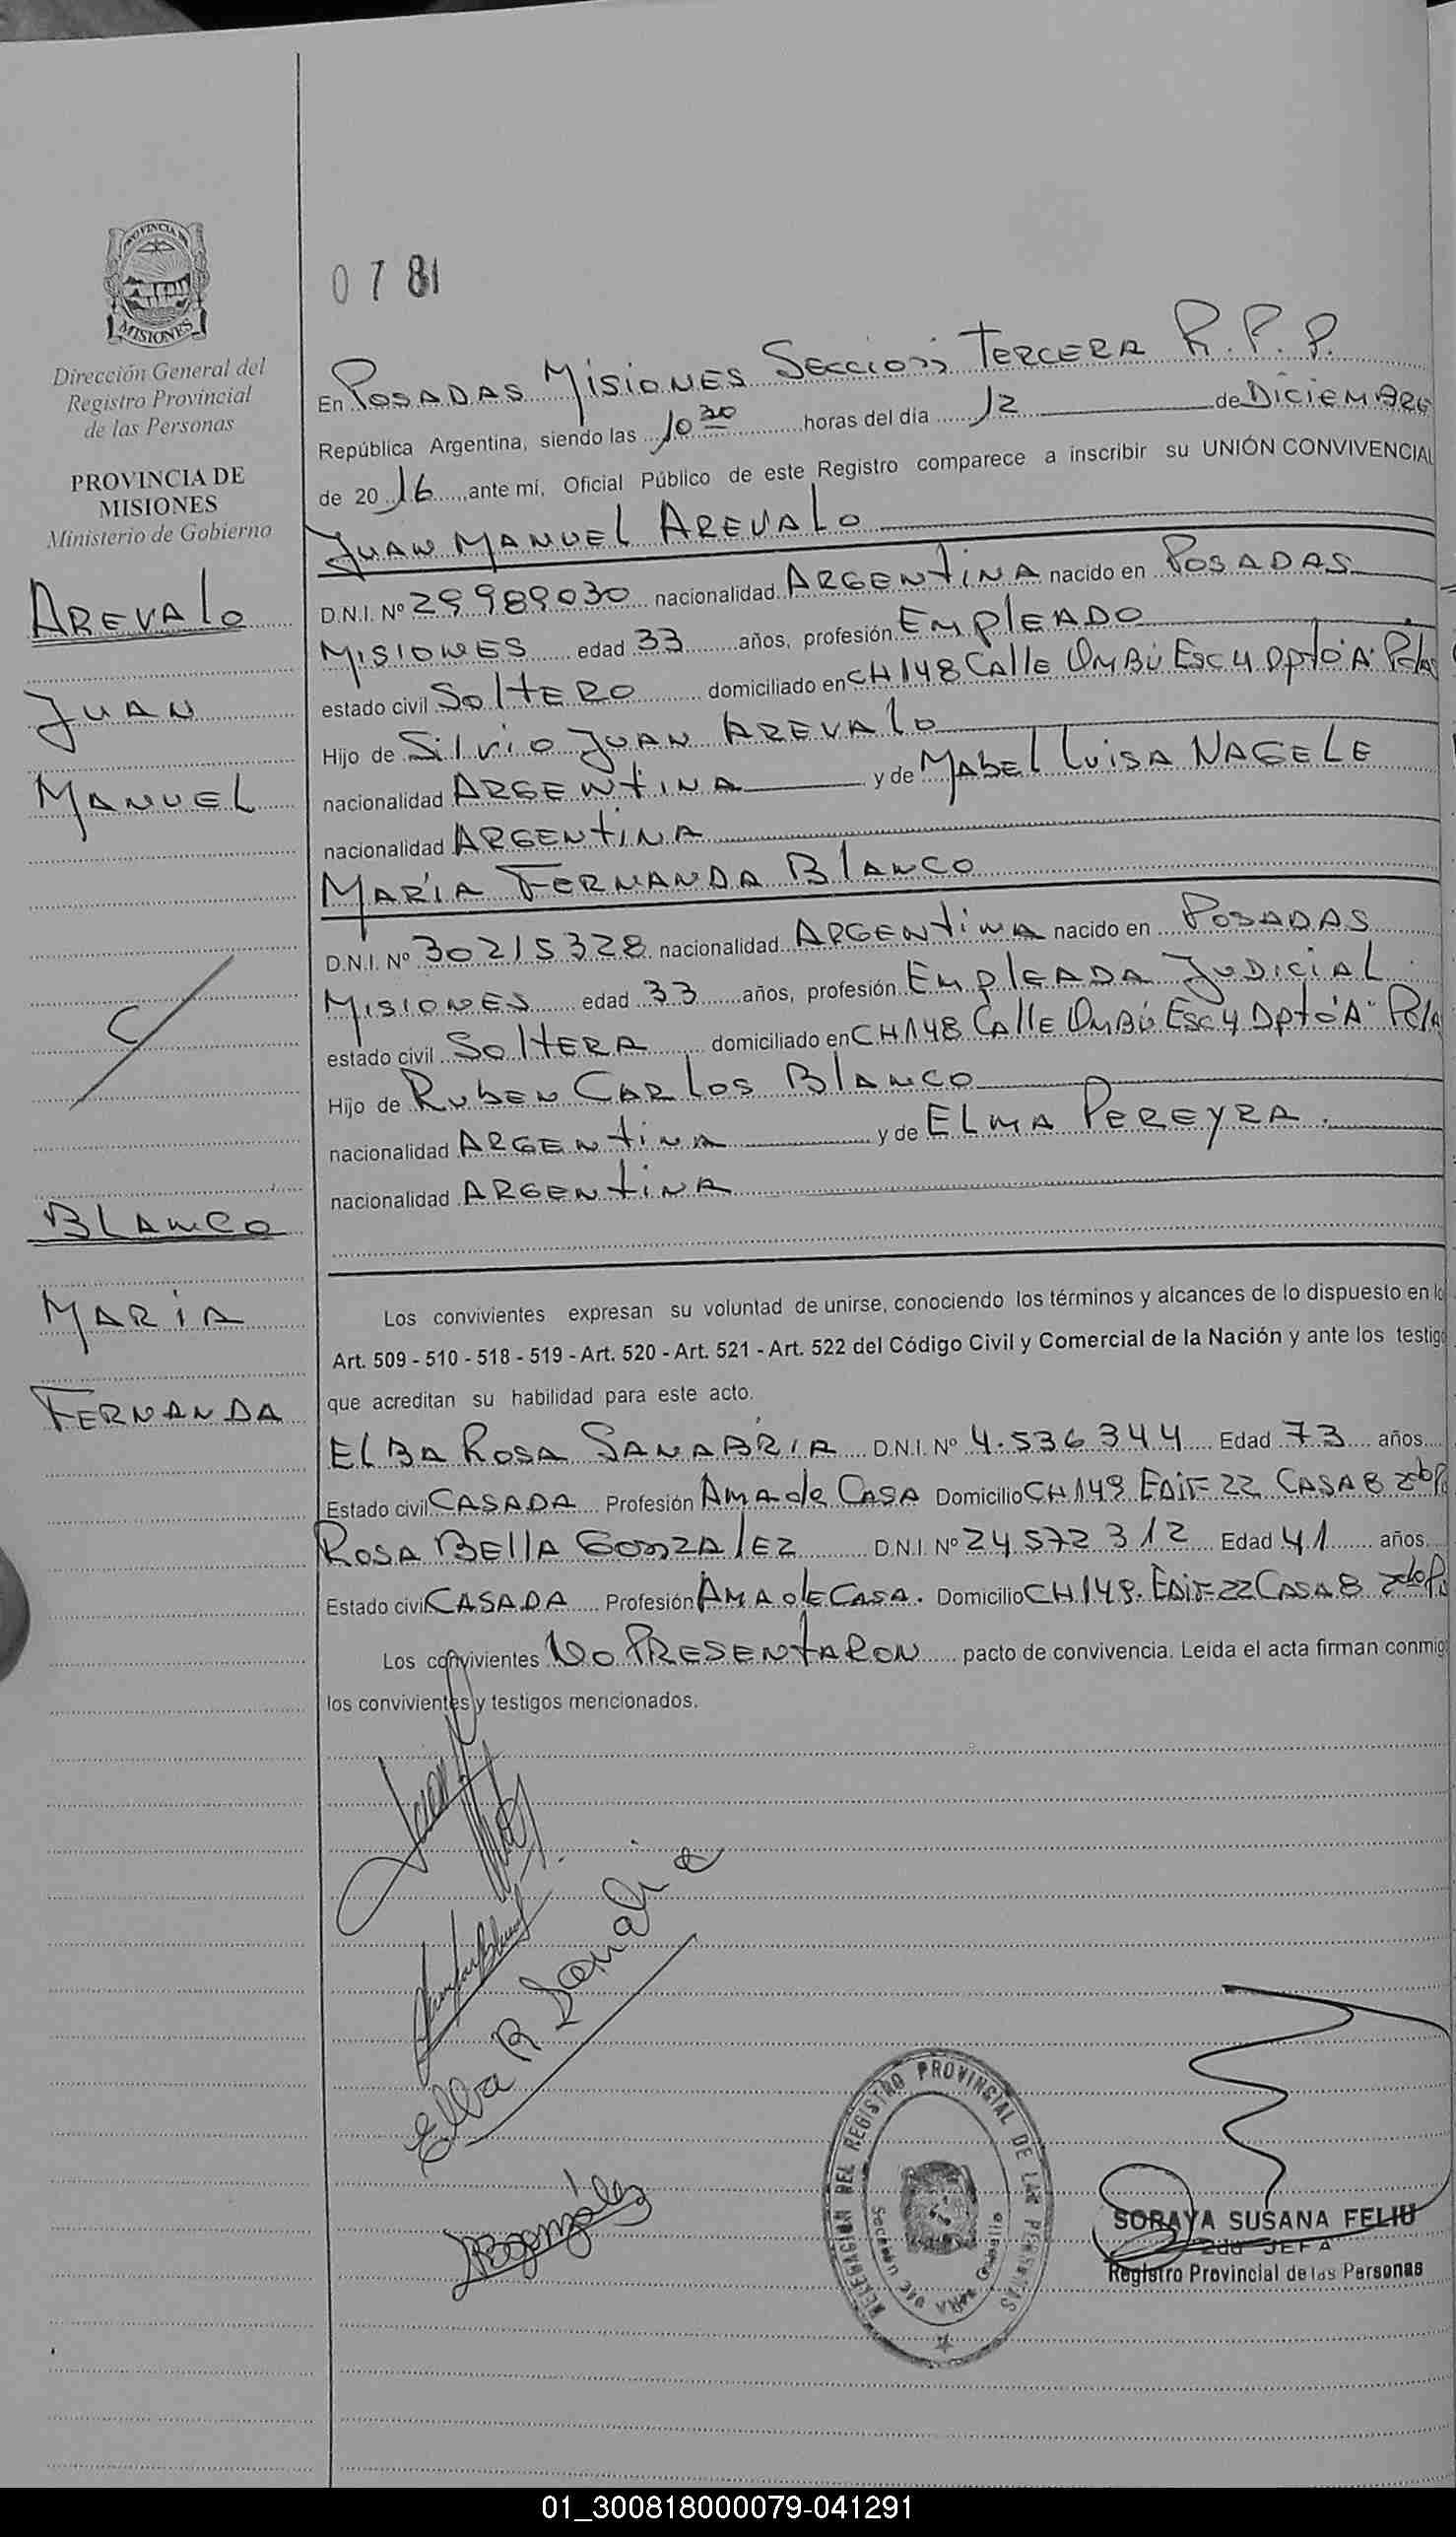 PROVINCIA DE
MISIONES
Dirección General del
Registro Provincial
de las Personas
PROVINCIA DE
MISIONES
Ministerio de Gobierno
AREVALO
JUAN
MANUEL
BLANCO
MARIA
FERNANDA
0781
En POSADAS MISIONES SECCION TERCERA R.P.P.
República Argentina, siendo las 10 30 horas del día 12 de DICIEMBRE
de 2016, ante mí, Oficial Público de este Registro comparece a inscribir su UNIÓN CONVIVENCIAL
JUAN MANUEL AREVALO
D.N.I. Nº 29989030 nacionalidad ARGENTINA nacido en POSADAS
MISIONES edad 33 años, profesión EMPLEADO
estado civil SOLTERO domiciliado en CH 148 CALLE OMBÚ ESC 4 DPTO "A" Pdas
Hijo de SILVIO JUAN AREVALO
nacionalidad ARGENTINA y de MABEL LUISA NAGELE
nacionalidad ARGENTINA
MARÍA FERNANDA BLANCO
D.N.I. Nº 30215328 nacionalidad ARGENTINA nacido en POSADAS
MISIONES edad 33 años, profesión EMPLEADA JUDICIAL
estado civil SOLTERA domiciliado en CH 148 CALLE OMBÚ ESC 4 DPTO "A"
Hijo de RUBEN CARLOS BLANCO
nacionalidad ARGENTINA y de ELMA PEREYRA.
nacionalidad ARGENTINA
Los convivientes expresan su voluntad de unirse, conociendo los términos y alcances de lo dispuesto en lo
Art. 509 - 510 - 518 - 519 - Art. 520 - Art. 521 - Art. 522 del Código Civil y Comercial de la Nación y ante los testigo
que acreditan su habilidad para este acto.
ELBA ROSA SANABRIA D.N.I. Nº 4.536344 Edad 73 años
Estado civil CASADA Profesión AMA de CASA Domicilio CH 149 EDIF 22 CASA 8
ROSA BELLA GONZALEZ D.N.I. Nº 24572312 Edad 41 años.
Estado civil CASADA Profesión AMA de CASA. Domicilio CH 149. EDIF 22 CASA 8
Los convivientes NO PRESENTARON pacto de convivencia. Leída el acta firman conmig
los convivientes y testigos mencionados.
Elba R Sanabria
RBGonzalez
DELEGACION DEL REGISTRO PROVINCIAL DE LAS PERSONAS
SORAYA SUSANA FELIU
2da JEFA
Registro Provincial de las Personas
01_300818000079-041291